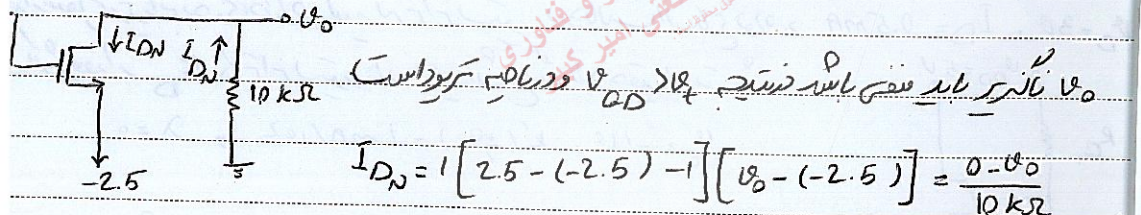 υ₀
I_DN I_DN
10 kΩ
-2.5
υ₀ ناگزیر باید منفی باشد در نتیجه υ_GD > υ_t و در ناحیه تریود است
I_DN = 1 [2.5 - (-2.5) - 1] [υ₀ - (-2.5)] = (0 - υ₀) / 10 kΩ